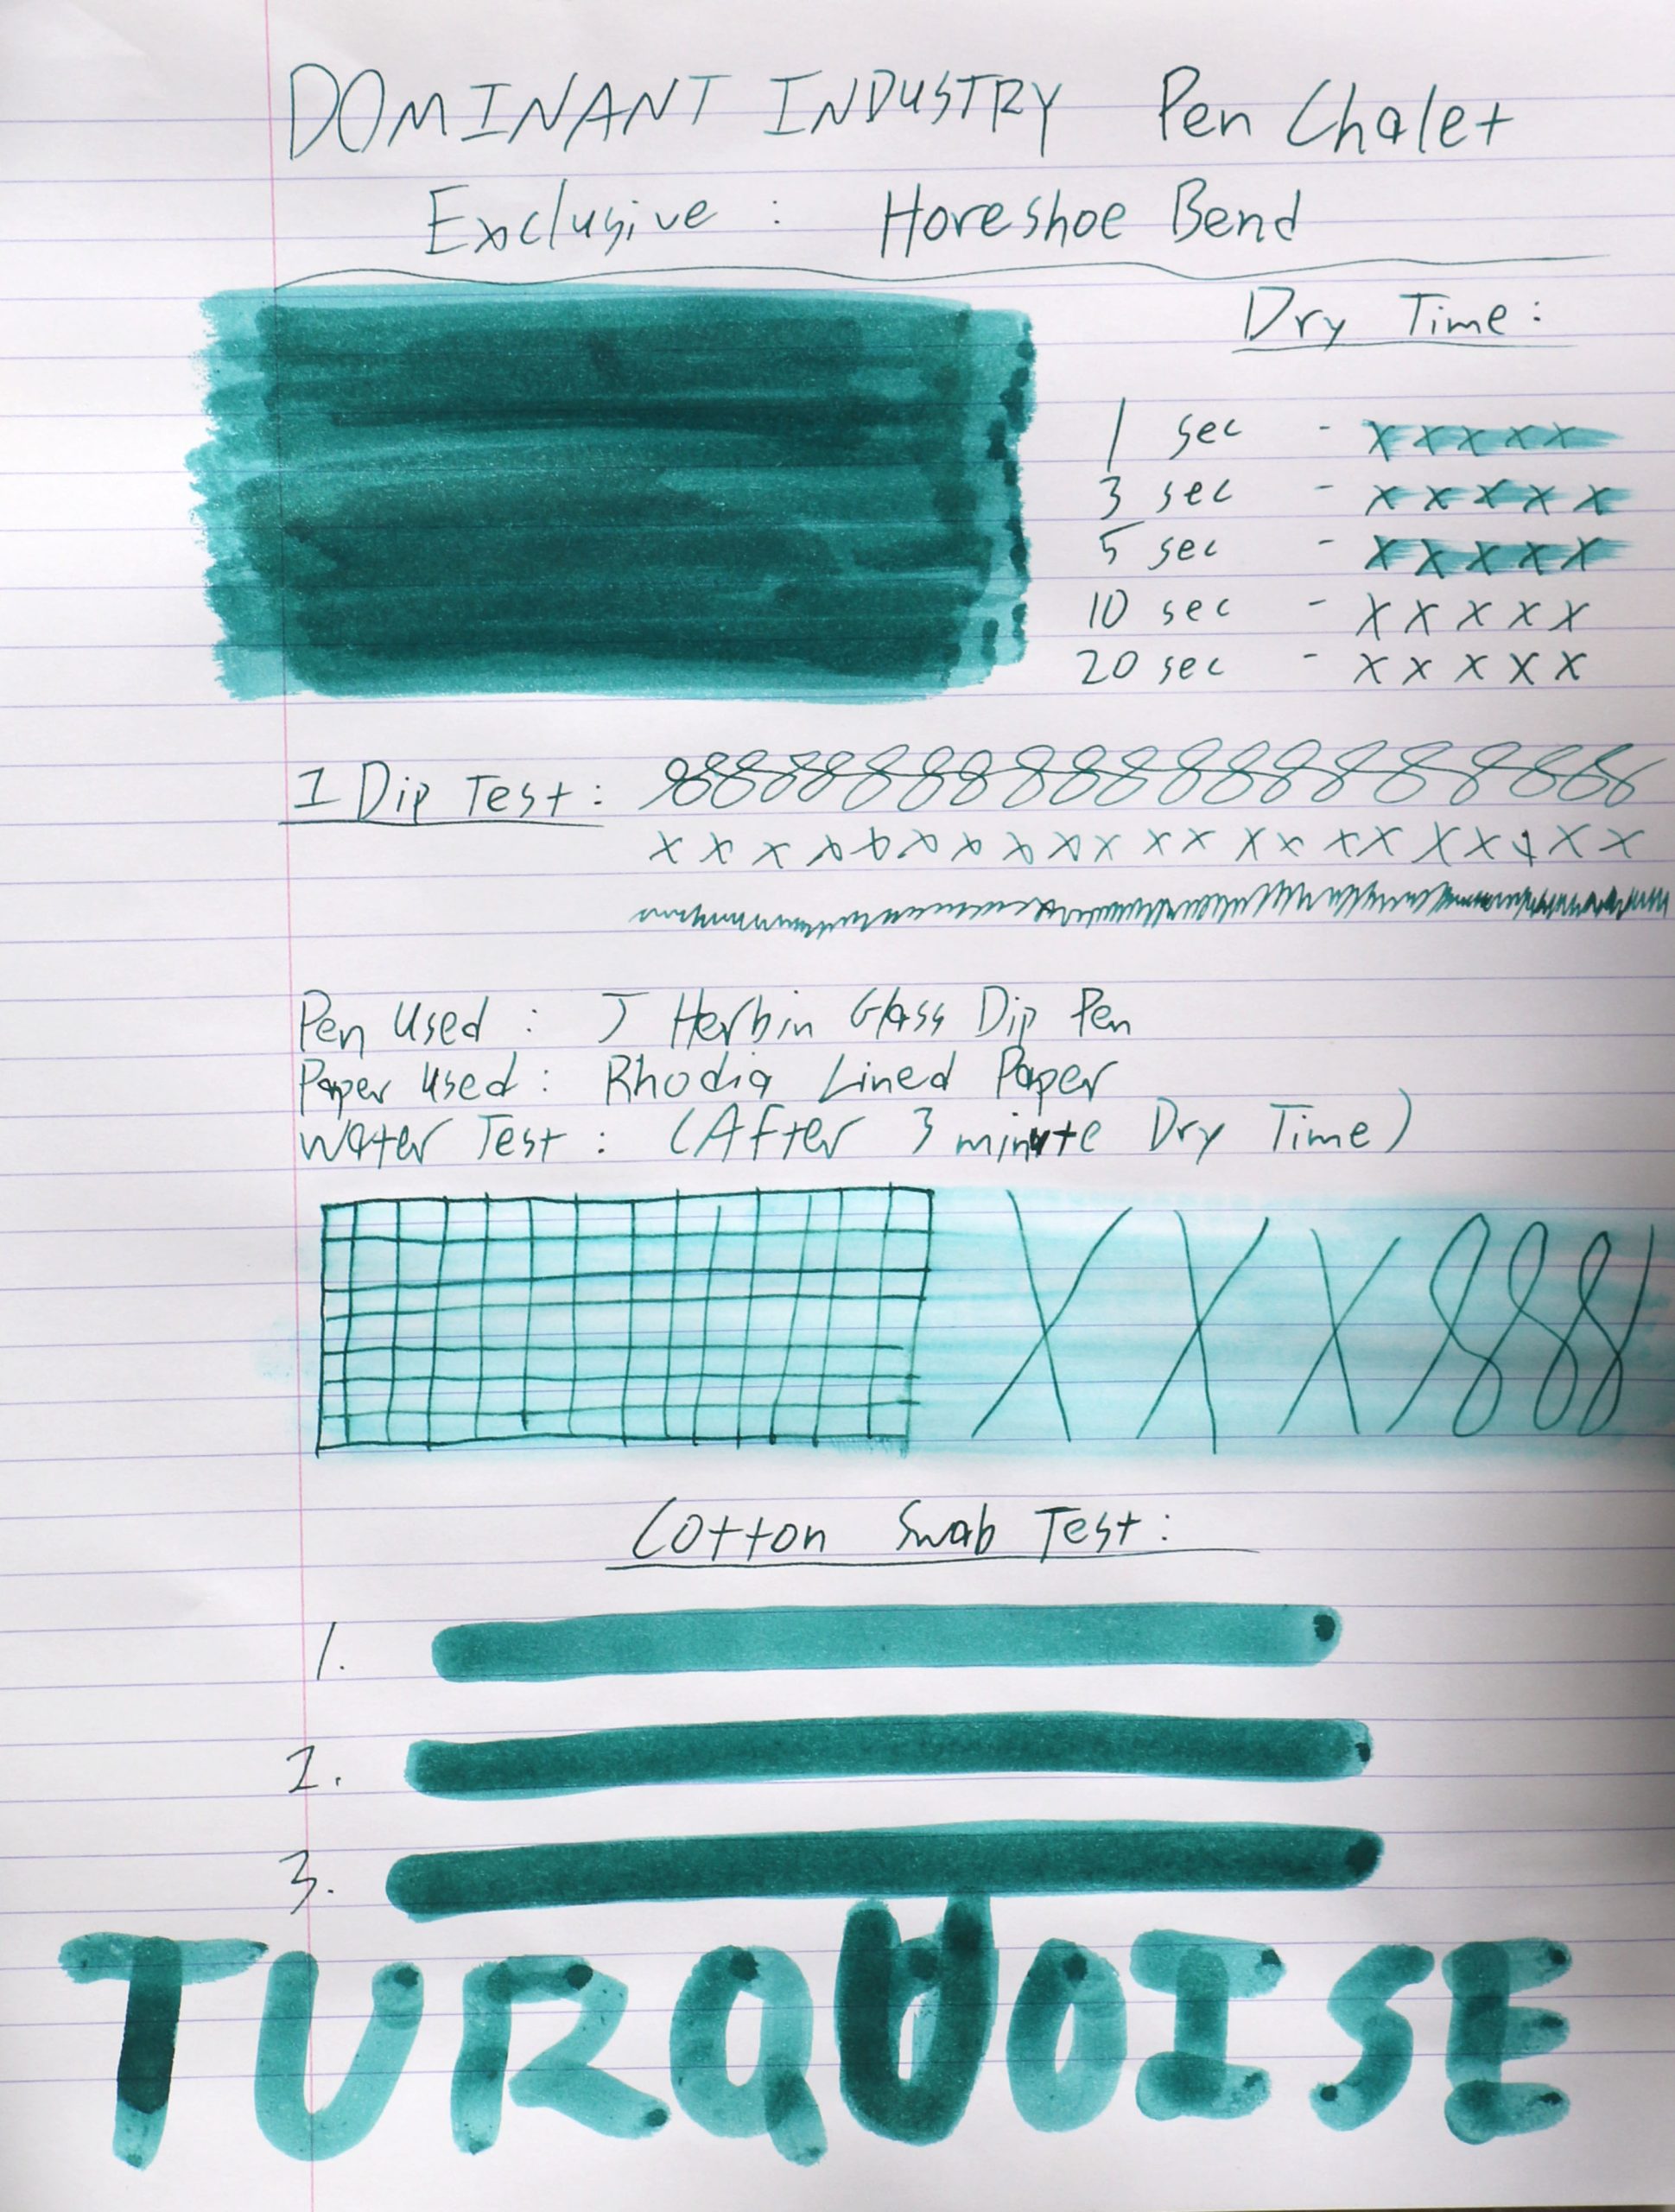 DOMINANT INDUSTRY Pen Chalet
Exclusive : Horeshoe Bend
Dry Time :
1 sec - x x x x x
3 sec - x x x x x
5 sec - x x x x x
10 sec - x x x x x
20 sec - x x x x x
1 Dip Test :
x x x x x x x x x x x x x x x x x x x x x
Pen Used : J Herbin Glass Dip Pen
Paper Used : Rhodia Lined Paper
Water Test : (After 3 minute Dry Time)
X X X
Cotton Swab Test :
1.
2.
3.
TURQUOISE